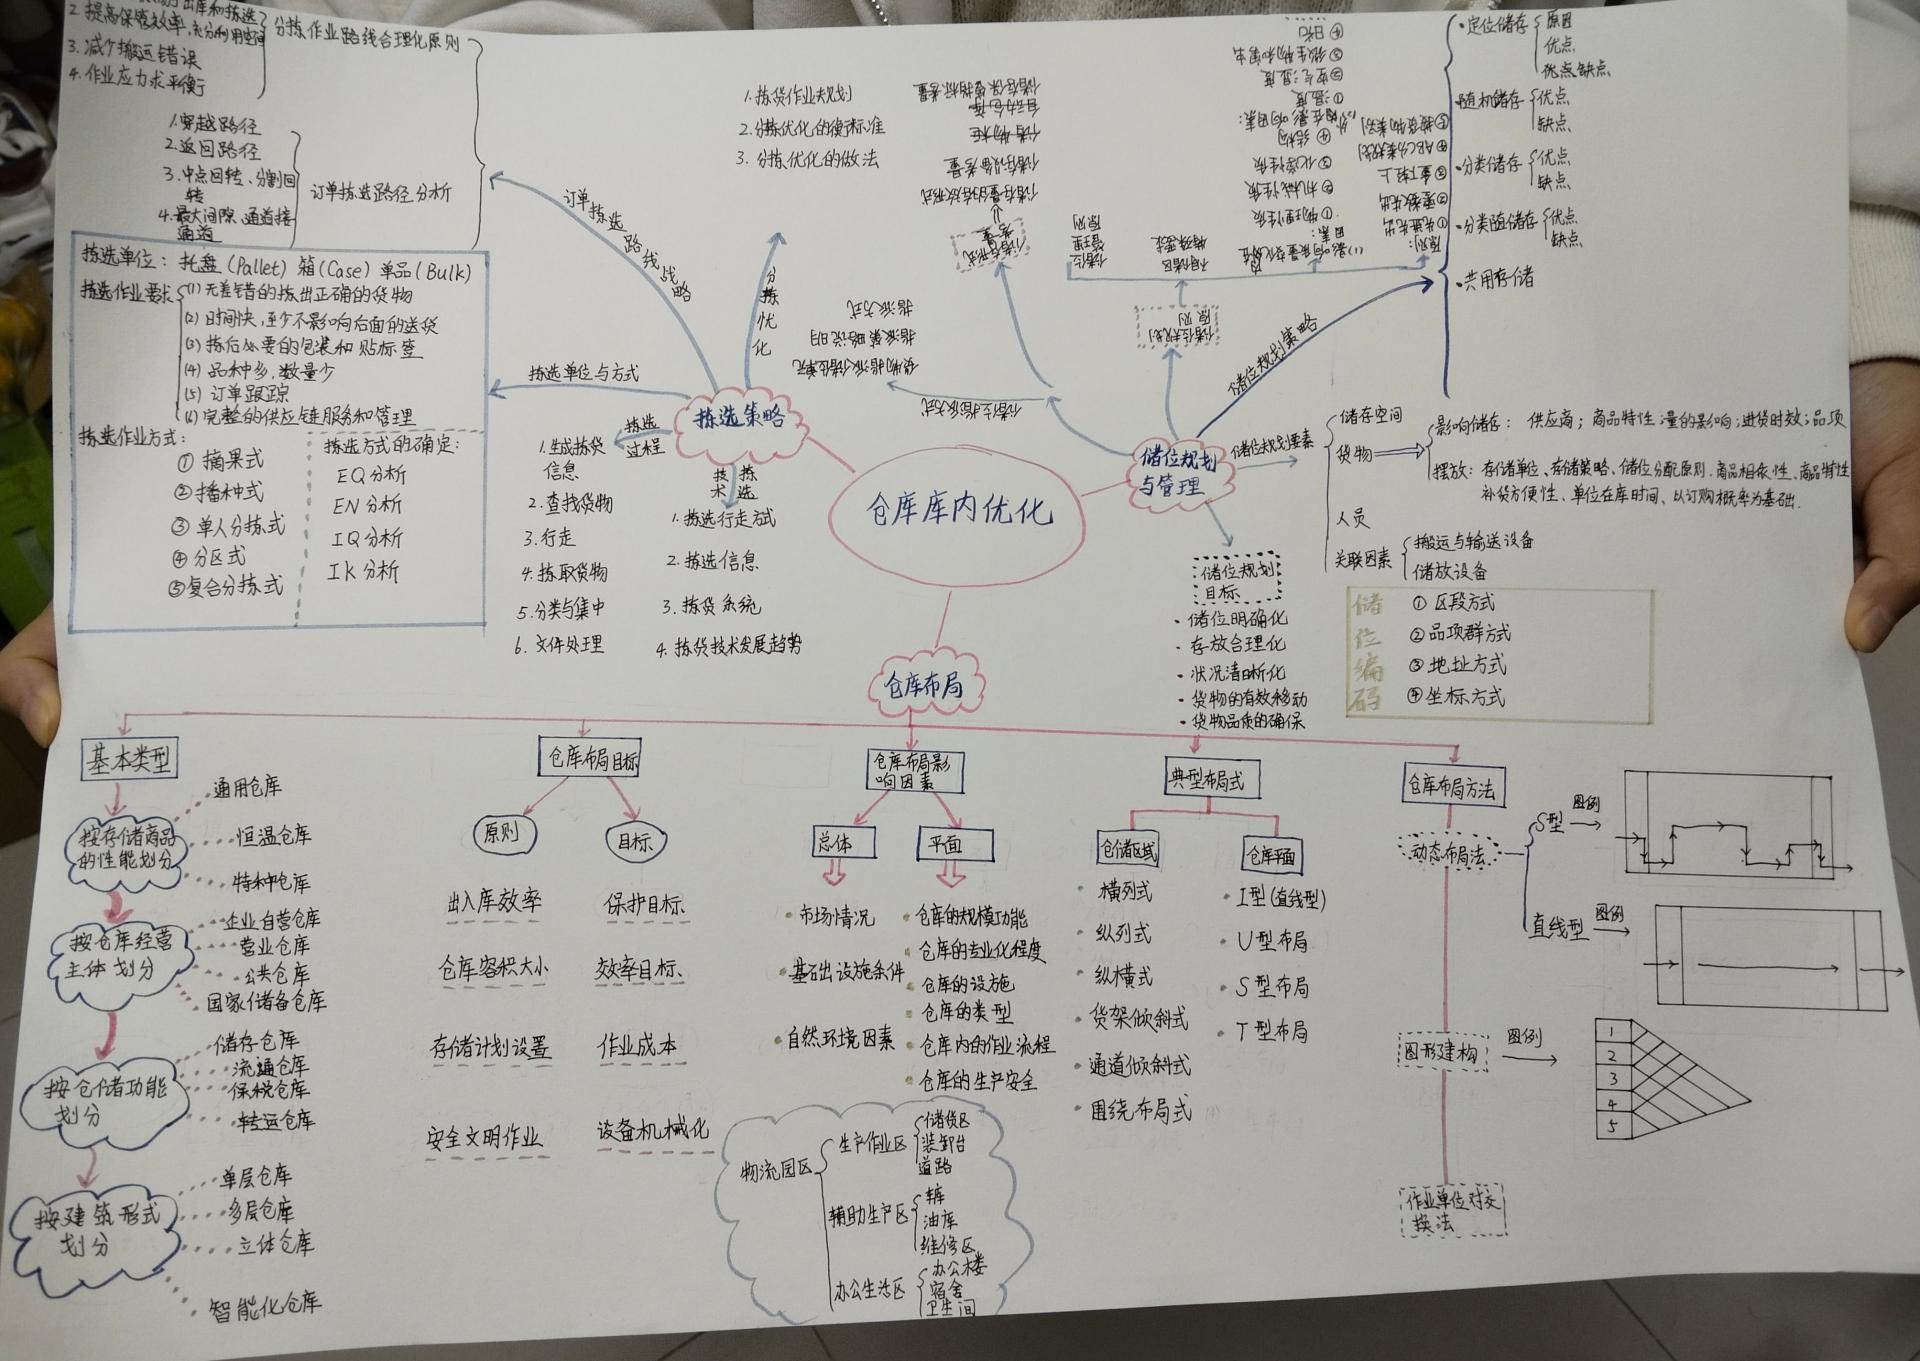 2. 提高保管效率,充分利用空间
3. 减少搬运错误
4. 作业应力求平衡
分拣作业路线合理化原则
1. 穿越路径
2. 返回路径
3. 中点回转、分割回转
4. 最大间隙、通道接通道
订单拣选路径分析
订单拣选路线战略
拣选单位:托盘(Pallet) 箱(Case) 单品(Bulk)
拣选作业要求
(1) 无差错的拣出正确的货物
(2) 时间快,至少不影响后面的送货
(3) 拣后必要的包装和贴标签
(4) 品种多,数量少
(5) 订单跟踪
(6) 完整的供应链服务和管理
拣选作业方式:
① 摘果式
② 播种式
③ 单人分拣式
④ 分区式
⑤ 复合分拣式
拣选方式的确定:
EQ分析
EN分析
IQ分析
IK分析
拣选单位与方式
拣选策略
分拣优化
1. 拣货作业规划
2. 分拣优化的衡标准
3. 分拣优化的做法
拣选过程
1. 生成拣货信息
2. 查找货物
3. 行走
4. 拣取货物
5. 分类与集中
6. 文件处理
拣选技术
1. 拣选行走方式
2. 拣选信息
3. 拣货系统
4. 拣货技术发展趋势
仓库库内优化
储位规划与管理
储位指派方式
货物指派储位单元
指派策略说明
指派方式
储存形式考量
储存量的存放形式
储存设备考量
储物柜
自动仓库
储存保管指标考量
储位规划原则
储位管理原则
不同储区
特殊要求
① 物理性质
② 机械性质
③ 化学性质
④ 结构
① 温度
② 空气湿度
④ 日光
原则:
① 先进先出
③ 重下轻上
④ ABC分类规划
储位规划策略
·定位储存
原因
优点
优点缺点
·随机储存
优点
缺点
·分类储存
优点
缺点
·分类随储存
优点
缺点
·共用存储
储位规划要素
储存空间
货物
影响储存:供应商;商品特性;量的影响;进货时效;品项
摆放:存储单位、存储策略、储位分配原则、商品相依性、商品特性
补货方便性、单位在库时间、以订购概率为基础.
人员
关联因素
搬运与输送设备
储放设备
储位规划目标
·储位明确化
·存放合理化
·状况清晰化
·货物的有效移动
·货物品质的确保
储位编码
① 区段方式
② 品项群方式
③ 地址方式
④ 坐标方式
仓库布局
基本类型
按存储商品的性能划分
通用仓库
恒温仓库
特种仓库
按仓库经营主体划分
企业自营仓库
营业仓库
公共仓库
国家储备仓库
按仓储功能划分
储存仓库
流通仓库
保税仓库
转运仓库
按建筑形式划分
单层仓库
多层仓库
立体仓库
智能化仓库
仓库布局目标
原则
出入库效率
仓库容积大小
存储计划设置
安全文明作业
目标
保护目标
效率目标
作业成本
设备机械化
仓库布局影响因素
总体
·市场情况
·基础出设施条件
·自然环境因素
平面
仓库的规模功能
仓库的专业化程度
仓库的设施
仓库的类型
仓库内的作业流程
仓库的生产安全
物流园区
生产作业区
储货区
装卸台
道路
辅助生产区
车库
油库
维修区
办公生活区
办公楼
宿舍
卫生间
典型布局式
仓储区域
横列式
纵列式
纵横式
货架倾斜式
通道倾斜式
围绕布局式
仓库平面
I型(直线型)
U型布局
S型布局
T型布局
仓库布局方法
动态布局法
S型
图例
直线型
图例
图形建构
图例
1
2
3
4
5
作业单位对交换法